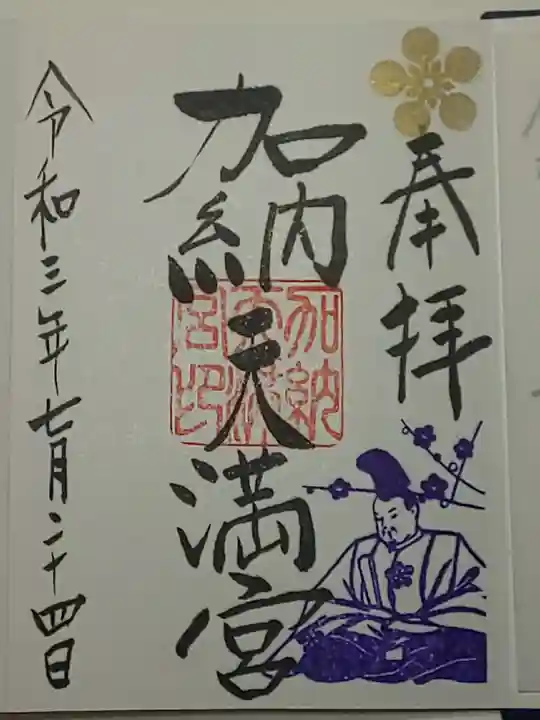 奉拝
加納天満宮
加納天満宮印
令和三年七月二十四日